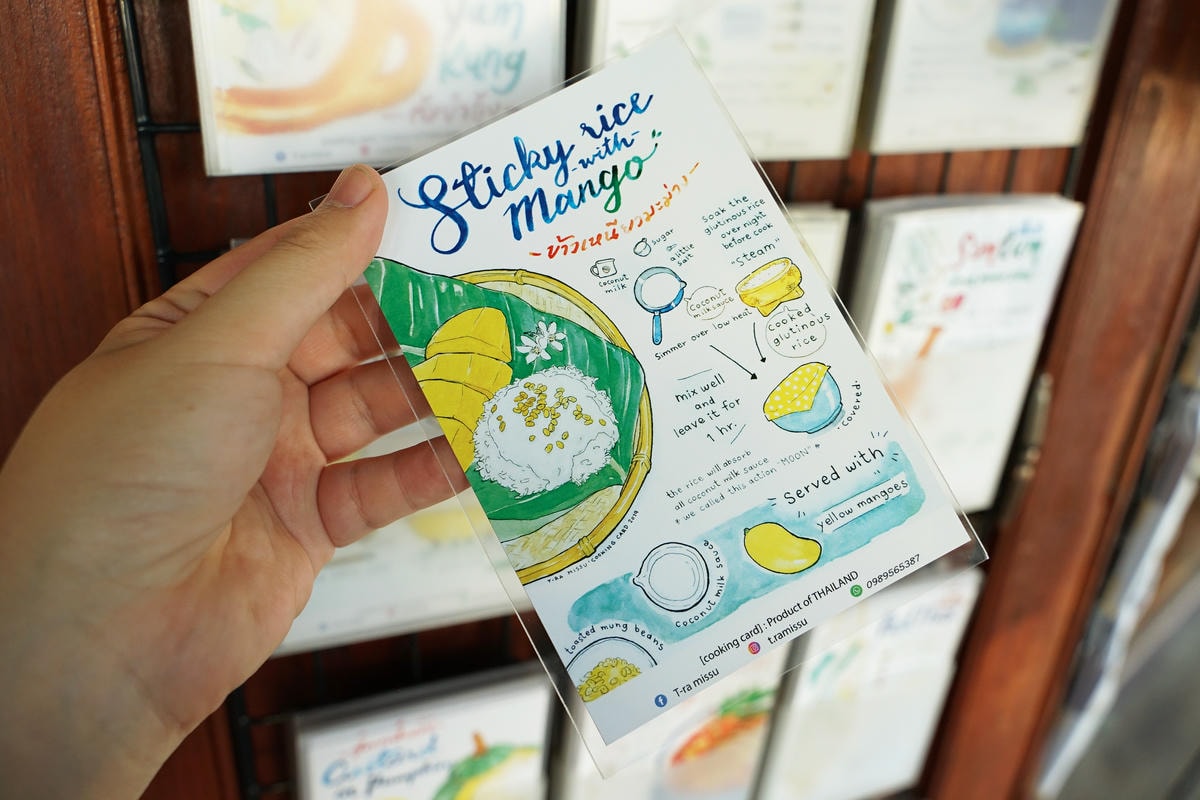 Yam
Kung
Sticky rice
-with-
Mango
~ข้าวเหนียวมะม่วง~
Soak the
glutinous rice
over night
before cook
"Steam"
sugar
a little
salt
coconut
milk
coconut
milk sauce
Simmer over low heat
Cooked
glutinous
rice
mix well
and
leave it for
1 hr.
covered.
the rice will absorb
all coconut milk sauce
* we called this action "MOON" *
Served with
yellow mangoes
coconut milk sauce
toasted mung beans
T-RA MISSU: COOKING CARD 2019
[cooking card] : Product of THAILAND
T-ra missu
t.ramissu
0989565387
Custard